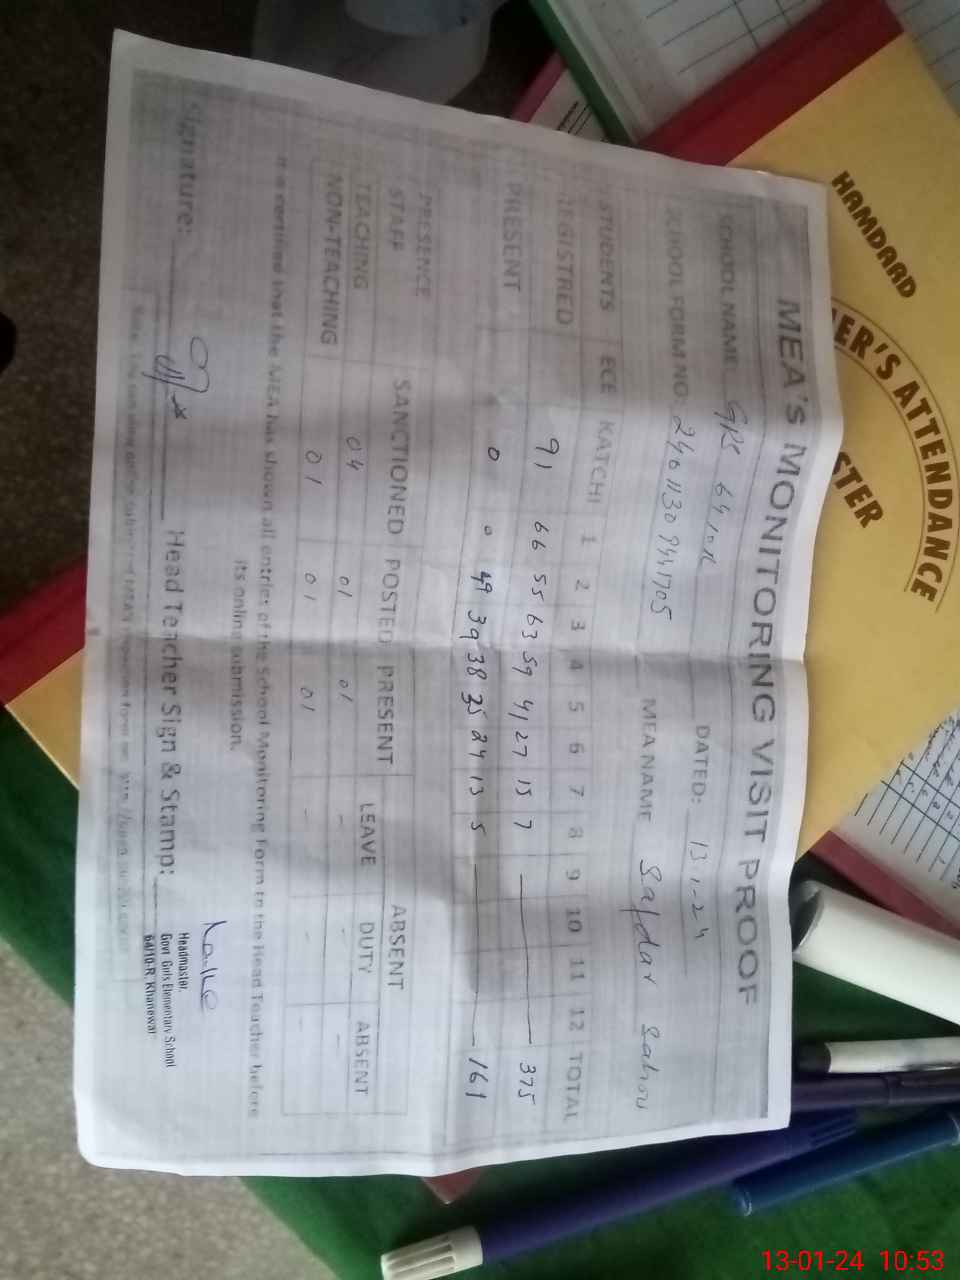 MEA's MONITORING VISIT PROOF
SCHOOL NAME: DATED: 13-1-24
SCHOOL FORM NO: MEA NAME Safdar
STUDENTS ECE KATCHI 1 2 3 4 5 6 7 8 9 10 11 12 TOTAL
REGISTRED 91 66 55 63 59 41 27 15 7 375
PRESENT 0 0 49 39 38 24 13 5 161
PRESENCE ABSENT
STAFF SANCTIONED POSTED PRESENT LEAVE DUTY ABSENT
TEACHING 04 01 01 - - -
NON-TEACHING 01 01 01 - - -
It is certified that the MEA has shown all entries of the School Monitoring Form to the Head Teacher before
its online submission.
Signature: Head Teacher Sign & Stamp:
Headmaster,
Govt Girls Elementary School
64/10-R, Khanewal
HAMDARD
ATTENDANCE
13-01-24 10:53